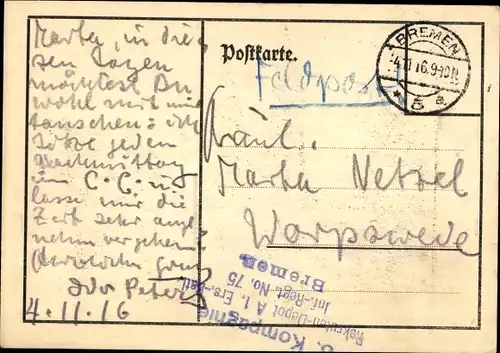 Marta, in die-
sen Tagen
möchtest Du
wohl mit mir
tauschen: ich
sitze jeden
Nachmittag
im C. C. u.
lasse mir die
Zeit sehr ange
nehm vergehen.
Peter
4.11.16
Postkarte.
Feldpost
BREMEN
4.11.16.9-10N
* 5 a
Fräul.
Marta Netzel
Worpswede
3. Kompagnie
Rekruten-Depot A I. Ers.-Batl.
Inf.-Regt. No. 75
Bremen.